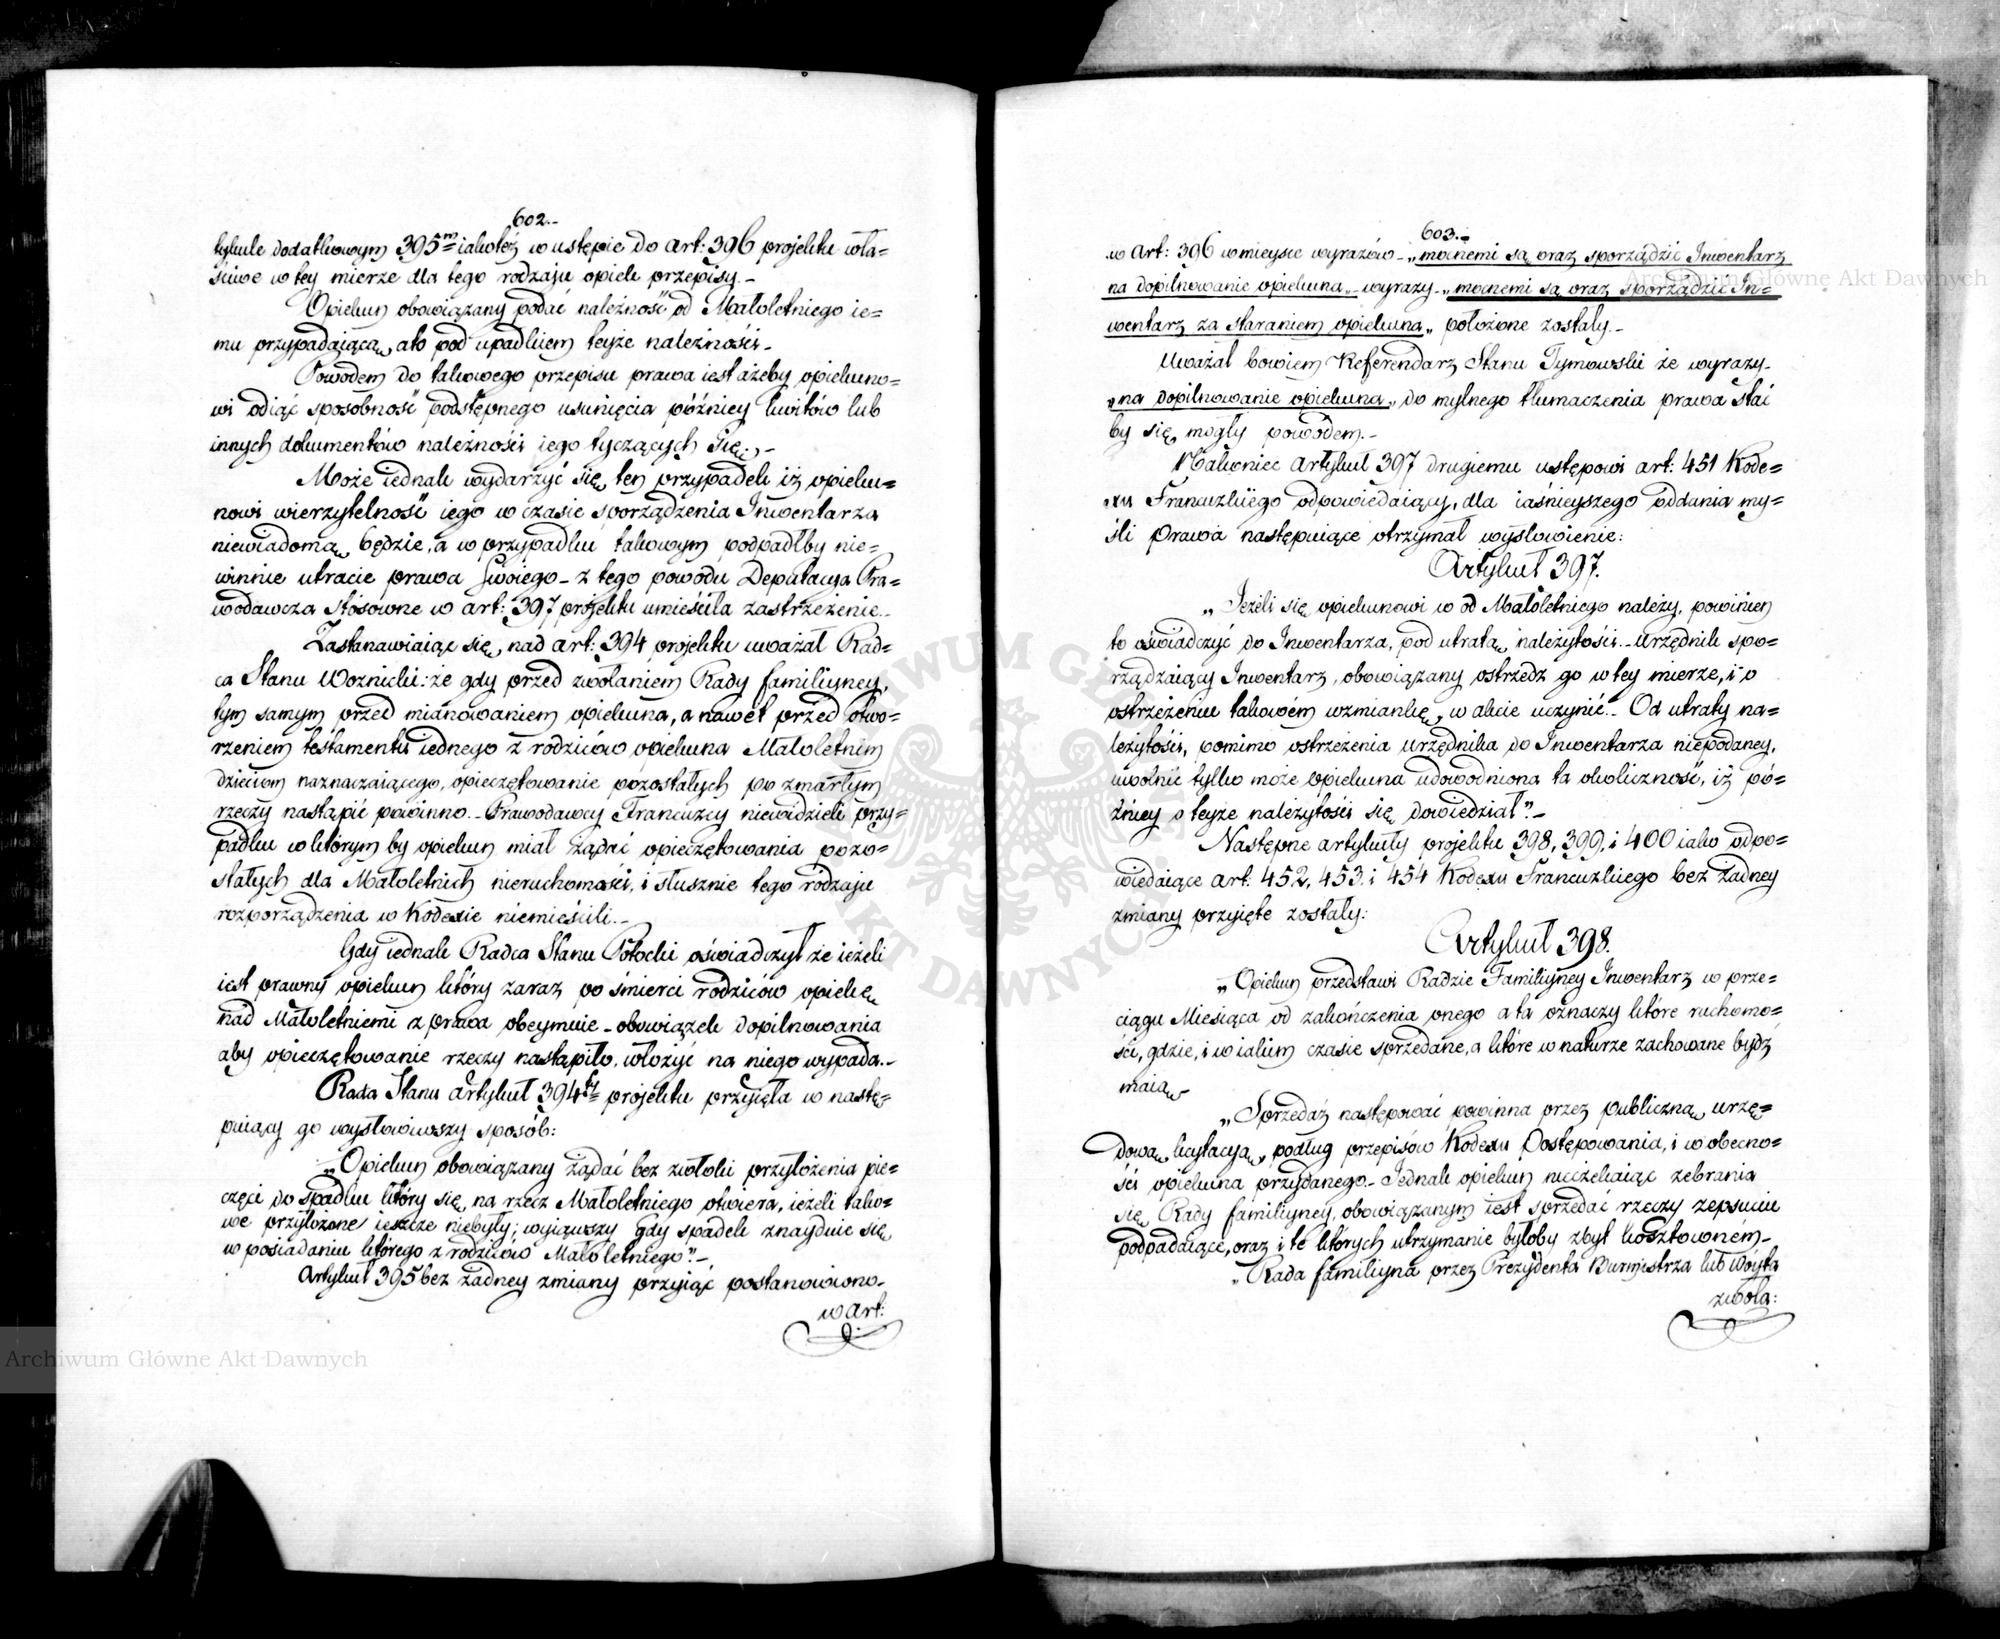 602.-
tykule dodatkowym 395m iakoteż w ustępie do art: 396 projektu wła=
ściwe w tey mierze dla tego rodzaju opiek przepisy.-
Opiekun obowiązany podać należność od Małoletniego ie=
mu przypadaiącą, ato pod upadkiem teyże należności.-
Powodem do takowego przepisu prawa iest ażeby opiekuno=
wi odiąć sposobność podstępnego usunięcia późniey kwitów lub
innych dokumentów należności iego tyczących się.-
Może iednak wydarzyć się, ten przypadek iż opieku=
nowi wierzytelność iego w czasie sporządzenia Inwentarza
niewiadomą będzie, a w przypadku takowym podpadłby nie=
winnie utracie prawa swoiego - z tego powodu Deputacya Pra=
wodawcza stosowne w art: 397 projektu umieściła zastrzeżenie.-
Zastanawiaiąc się, nad art: 394 projektu uważał Rad=
ca Stanu Woznicki: że gdy przed zwołaniem Rady familiyney,
tym samym przed mianowaniem opiekuna, a nawet przed otwo=
rzeniem testamentu iednego z rodziców opiekuna Małoletnim
dzieciom naznaczaiącego, opieczętowanie pozostałych po zmarłym
rzeczy nastąpić powinno.- Prawodawcy Francuzcy niewidzieli przy=
padku w którym by opiekun miał żądać opieczętowania pozo=
stałych dla Małoletnich nieruchomości, i słusznie tego rodzaju
rozporządzenia w Kodexie niemieścili.-
Gdy iednak Radca Stanu Potocki oświadczył że ieżeli
iest prawny opiekun który zaraz po śmierci rodziców opiekę
nad Małoletniemi z prawa obeymuie - obowiązek dopilnowania
aby opieczętowanie rzeczy nastąpiło, włożyć na niego wypada.-
Rada Stanu artykuł 394ty projektu przyięła w nastę=
puiący go wysłowiwszy sposób:
„Opiekun obowiązany żądać bez zwłoki przyłożenia pie=
częci do spadku który się, na rzecz Małoletniego otwiera, ieżeli tako=
we przyłożone ieszcze niebyły; wyiąwszy gdy spadek znayduie się
w posiadaniu którego z rodziców Małoletniego”.-
Artykuł 395 bez żadney zmiany przyiąć postanowiono.
w art:
603.-
w art: 396 w mieysce wyrazów - „mocnemi są oraz sporządzić Inwentarz
na dopilnowanie opiekuna„ - wyrazy - „mocnemi są oraz sporządzić In=
wentarz za staraniem opiekuna„ położone zostały.-
Uważał bowiem Referendarz Stanu Tymowski że wyrazy -
„na dopilnowanie opiekuna„ do mylnego tłumaczenia prawa stać
by się, mogły powodem.-
Nakoniec artykuł 397 drugiemu ustępowi art: 451 Kode=
xu Francuzkiego odpowiedaiący, dla iaśnieyszego oddania my=
śli Prawa następuiące otrzymał wysłowienie:
Artykuł 397.
„Jeżeli się opiekunowi w od Małoletniego należy, powinien
to oświadczyć do Inwentarza, pod utratą należytości.- Urzędnik spo=
rządzaiący Inwentarz, obowiązany ostrzedz go w tey mierze, i o
ostrzeżeniu takowém wzmiankę, w akcie uczynić.- Od utraty na=
leżytości, pomimo ostrzeżenia urzędnika do Inwentarza niepodaney,
uwolnić tylko może opiekuna udowodniona ta okoliczność, iż pó=
źniey o teyże należytości się dowiedział”.-
Następne artykuły projektu 398, 399, i 400 iako odpo=
wiedaiące art. 452, 453. i 454 Kodexu Francuzkiego bez żadney
zmiany przyięte zostały:
Artykuł 398.
„Opiekun przedstawi Radzie Familiyney Inwentarz w prze=
ciągu Miesiąca od zakończenia onego a ta oznaczy które ruchomo=
ści, gdzie, i w iakim czasie sprzedane, a które w naturze zachowane bydź
maią
„Sprzedaż następować powinna przez publiczną urzę=
dową licytacyą, podług przepisów Kodexu Postępowania, i w obecno=
ści opiekuna przydanego.- Jednak opiekun nieczekaiąc zebrania
się, Rady familiyney, obowiązanym iest sprzedać rzeczy zepsuciu
podpadaiące, oraz i te których utrzymanie byłoby zbyt kosztowném.-
„Rada familiyna przez Prezydenta Burmistrza lub Wóyta
zwoła:
Archiwum Główne Akt Dawnych
Archiwum Główne Akt Dawnych